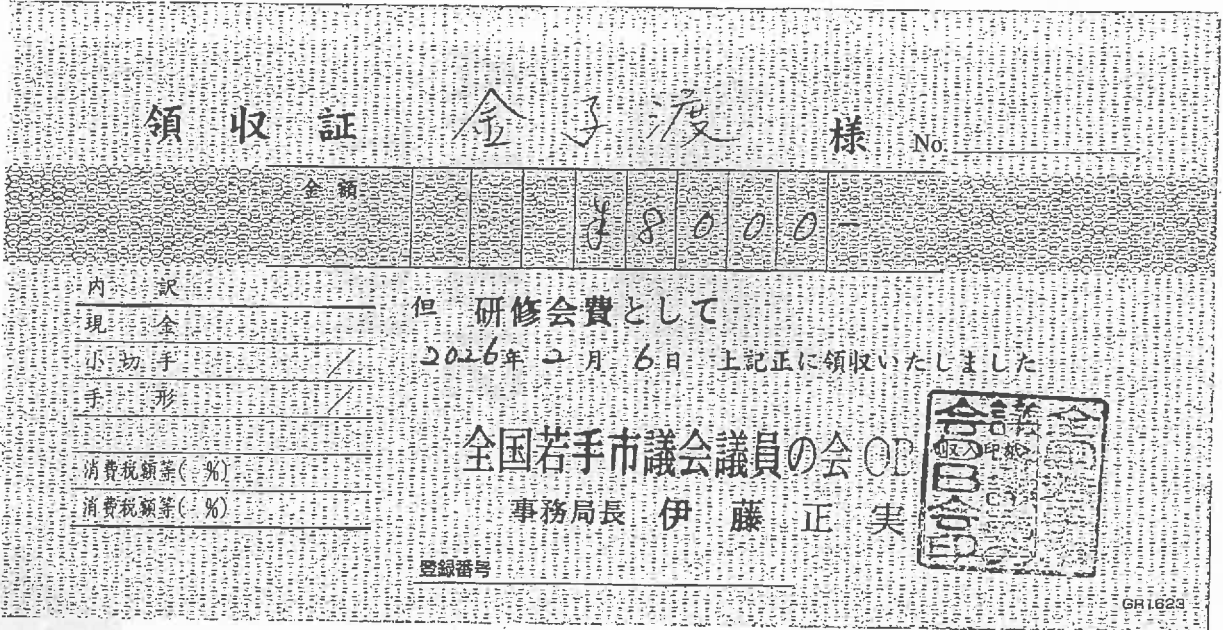 領収証 金子渡 様 No.
金額 ¥8000-
内訳
現金
小切手 /
手形 /
消費税額等( %)
消費税額等( %)
但 研修会費として
2026年2月6日 上記正に領収いたしました
全国若手市議会議員の会OB
事務局長 伊藤正実
収入印紙
登録番号
GR1623